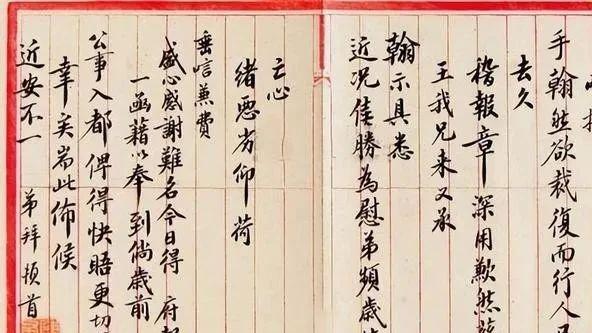 手翰然欲裁復而行人
去久
稽報章深用歉然
王我兄来又承
翰示具悉
近况佳勝為慰弟頻歲
亡心
緒惡劣仰荷
垂唁兼費
盛心感謝難名今日得 府報
一函藉以奉到倘歲前
公事入都俾得快晤更切
幸矣耑此佈候
近安不一 弟拜頓首